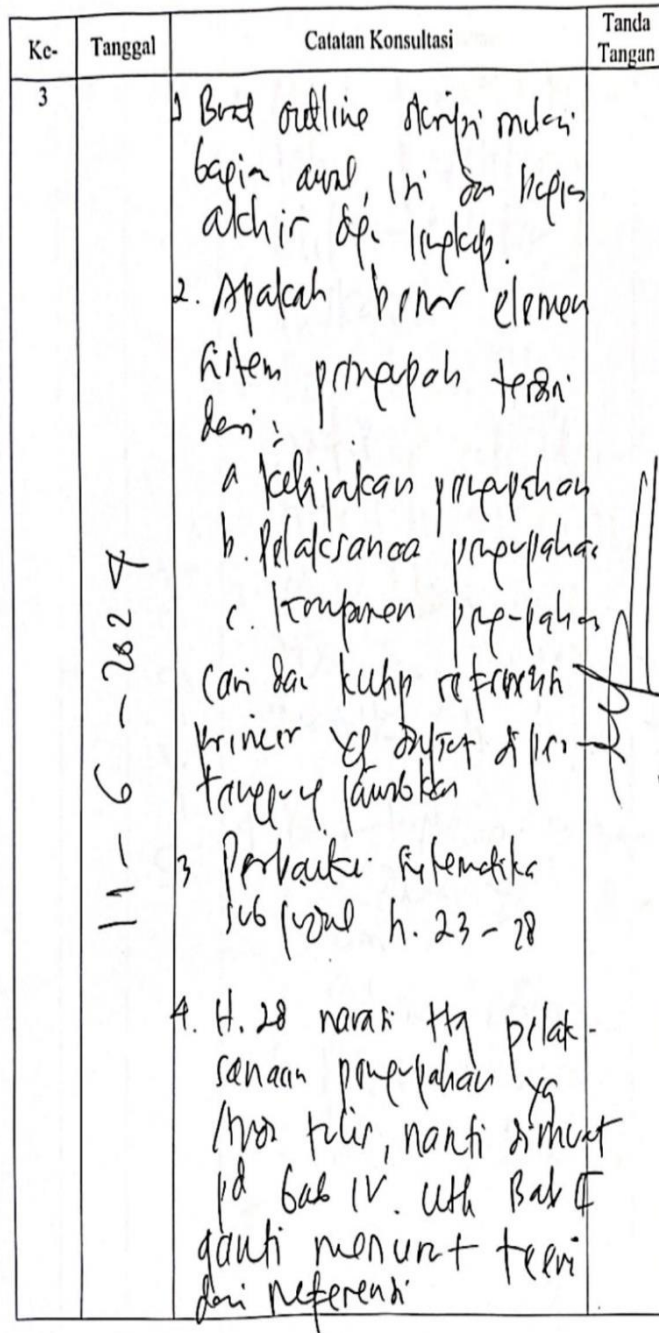 Ke- Tanggal Catatan Konsultasi Tanda Tangan
3
11-6-2024
1 Buat outline skripsi mulai
bagian awal, isi dan bagian
akhir dgn lengkap.
2. Apakah benar elemen
sistem pengupahan terdiri
dari :
a kebijakan pengupahan
b. Pelaksanaa pengupahan
c. Komponen pengupahan
cari dan kutip referensi
primer yg dapat diper-
tanggung jawabkan
3 Perbaiki sistematika
sub judul h. 23-28
4. H. 28 narasi ttg pelak-
sanaan pengupahan yg
tulis, nanti dimuat
pd bab IV. Utk Bab II
ganti menurut teori
dari referensi